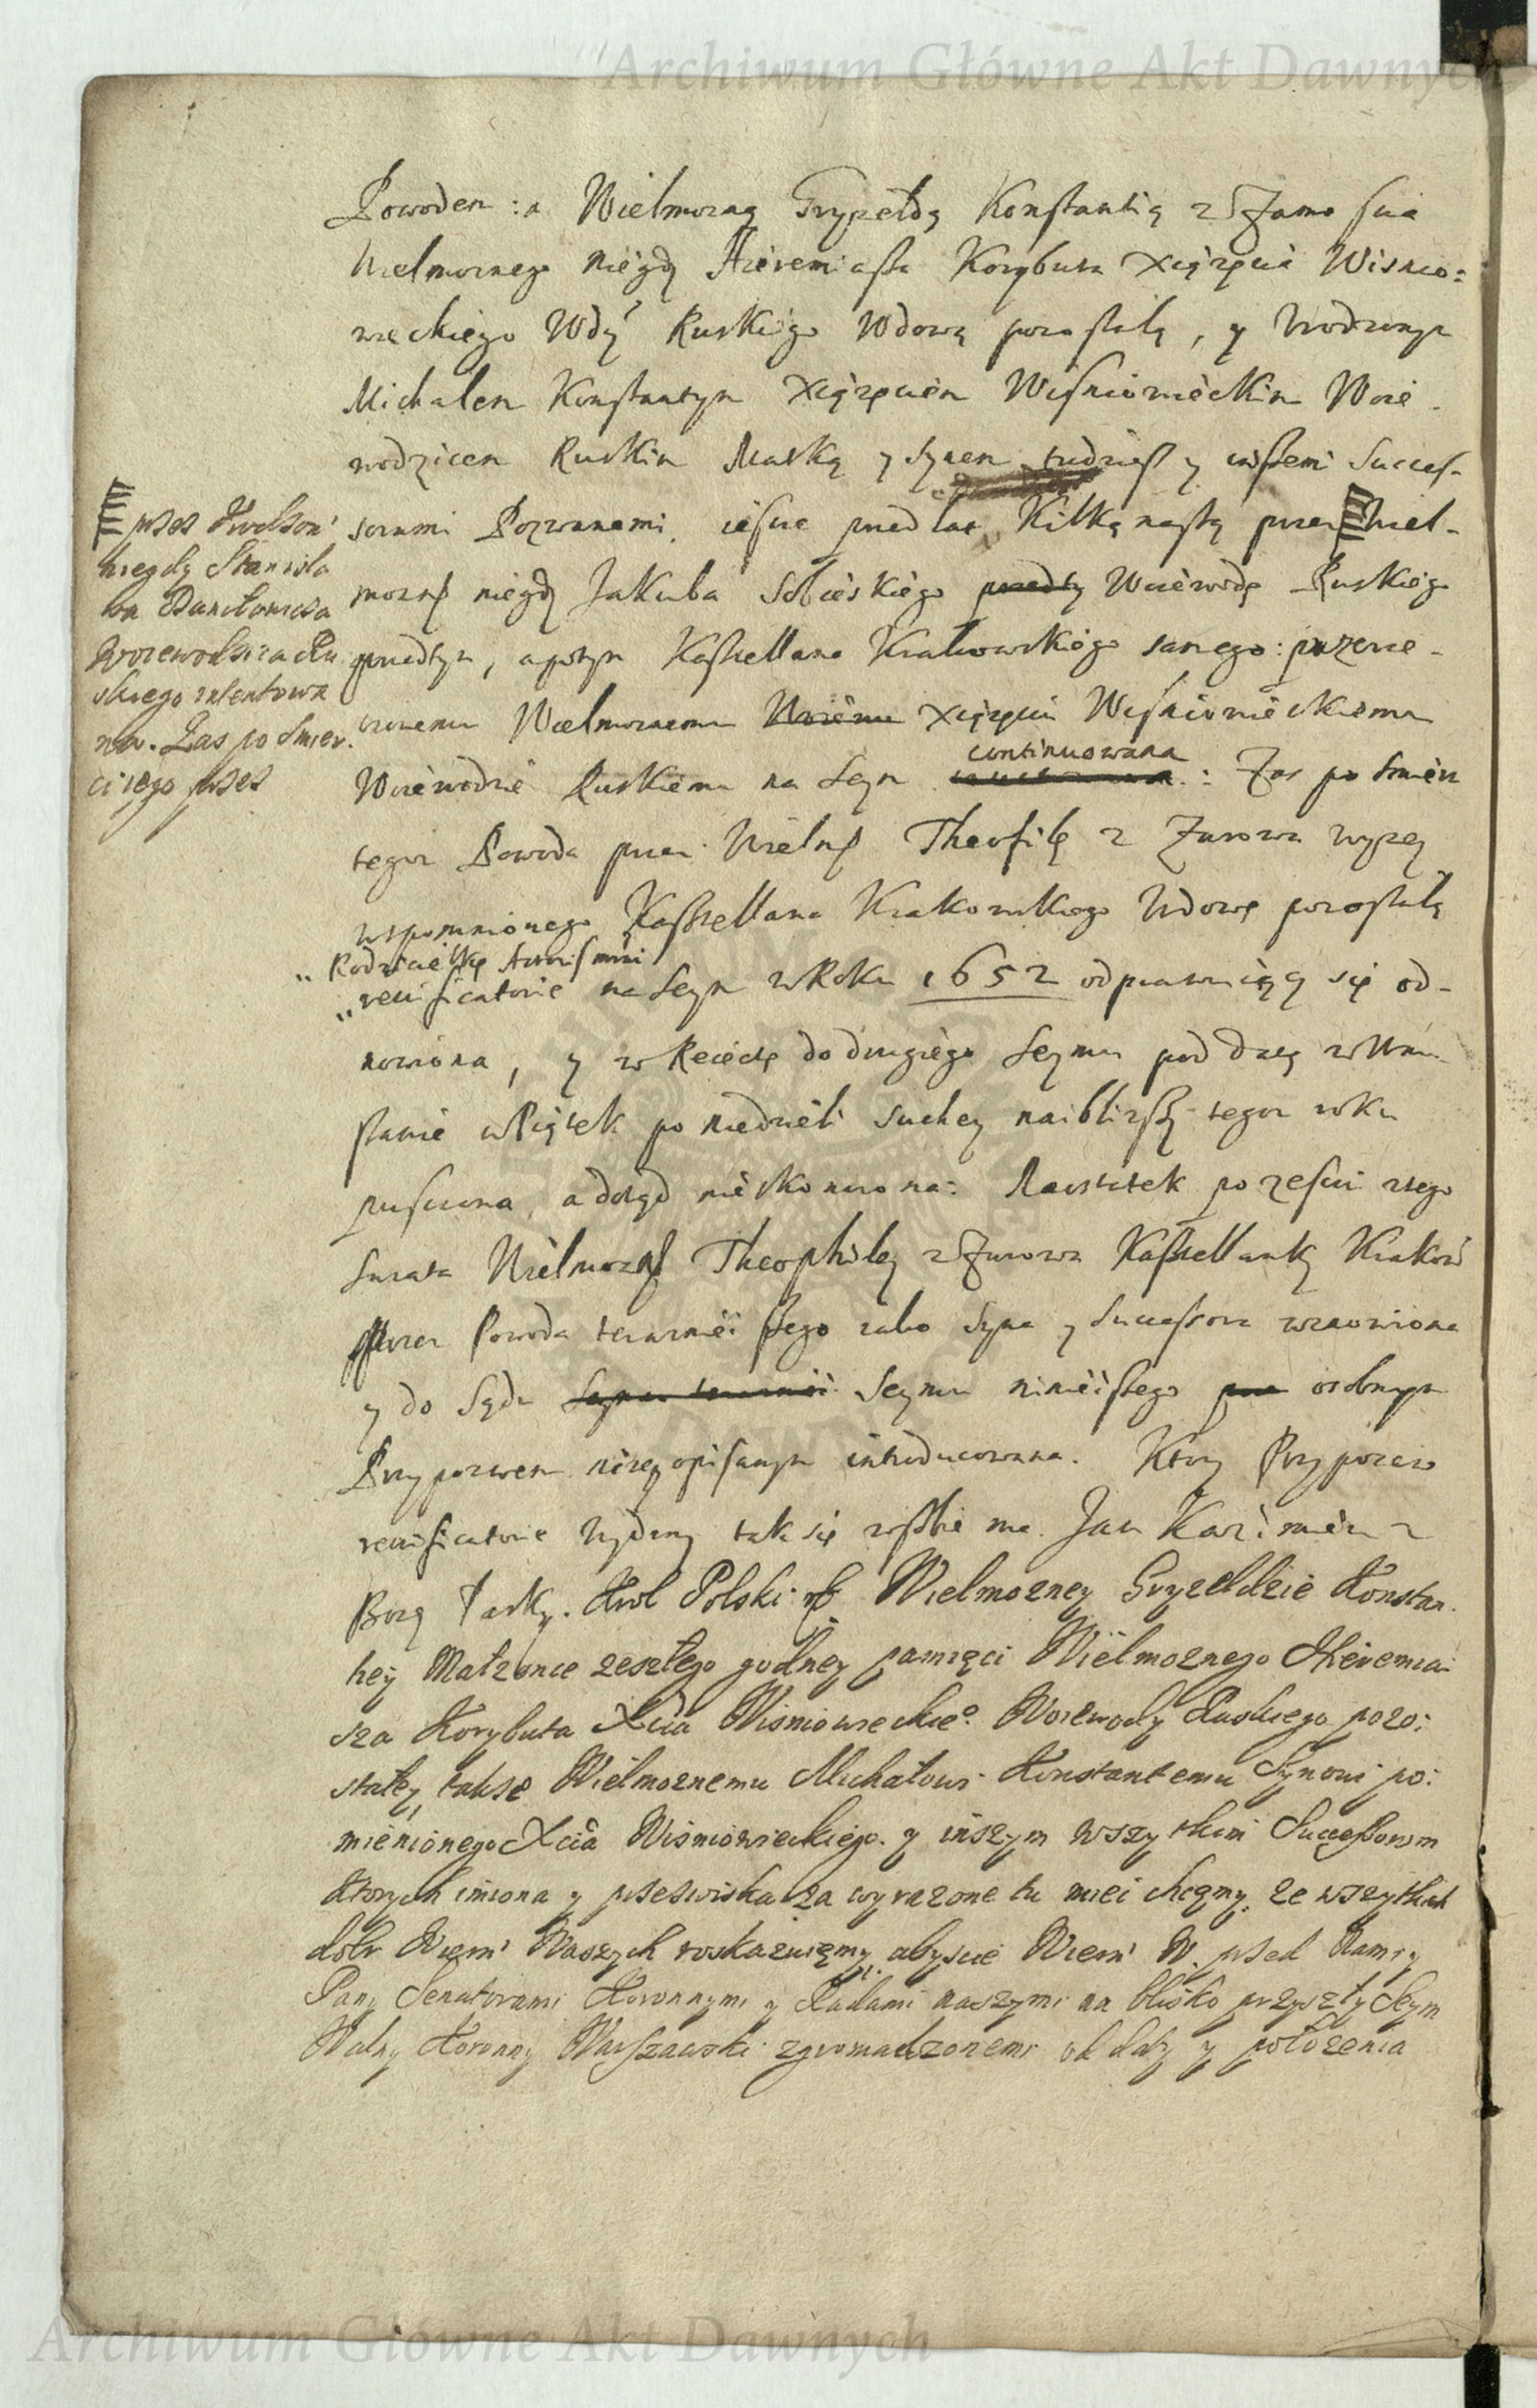 Archiwum Główne Akt Dawnych
Powodem: a Wielmozną Gryzeldą Konstantią z Zamoscia
Wielmoznego niegdy Hieremiasza Korybuta Xiążęcia Wisnio:
wieckiego Wdy Ruskiego Wdową pozostałą, y Urodzonym
Michałem Konstantym Xiążęciem Wisniowieckim Woie
wodzicem Ruskim Matką y Synem tudziesz y inszemi Succes-
sorami Pozwanemi. iescze przed lat Kilką nastą przez Wiel-
moznego niegdy Jakuba Sobieskiego przedty Woiewodę Ruskiego
przedtym, a potym Kasztellana Krakowskiego samego: przeciw
Wielmoznemu Xiążęciu Wisniowieckiemu
Woiewodzie Ruskiemu na Seym continuowana: Zas po smierci
tegoz Powoda przez Wielmozną Theofilę z Zurowa wyzey
wspomnionego Kasztellana Krakowskiego Wdowę pozostałą
Rodzicielkę
reussicatorie na Seym w Roku 1652 odprawuiący się od-
nowiona, y w Recießę do drugiego Seymu pod datą w War
szawie w Piątek po niedzieli suchey naiblizszy tegoz roku
puszczona, a dotąd nieskonczona: Naostatek po zesciu z tego
swiata Wielmozney Theophiley z Zurowa Kasztellanky Krakow
przez Powoda teraznieiszego iako Syna y Successora wznowiona
y do Sądu Seymu ninieiszego osobnym
Przypozwem nizey opisanym introducowana. Ktory Przypozew
reussicatorie wydany tak się w sobie ma. Jan Kazimierz z
Bozey Łasky. Krol Polski Wielmozney Gryzeldzie Konstan
tiey Małzonce zeszłego godney pamięci Wielmoznego Hieremia
sza Korybuta Xcia Wisniowieckieo. Woiewody Ruskiego pozo:
stałey, takze Wielmoznemu Michałowi Konstantemu Synowi po:
mienionego Xcia Wisniowieckiego. y inszym wszytkim Successorom
ktorych imiona y przeswiska za wyrazone tu mieć chcemy, ze wszytkich
dobr Wiern: Waszych roskazuiemy, abyscie Wiern: W. przed Nami y
Pany Senatorami Koronnymi y Radami naszymi na blisko przyszły Seym
Walny Koronny Warszawski zgromadzonemi od daty y połozenia
przez
niegdy Stanisła
wa Daniłowicza
Woiewodzica Ru
skiego intentowa
na. Zas po smier
ci iego przez
Archiwum Główne Akt Dawnych